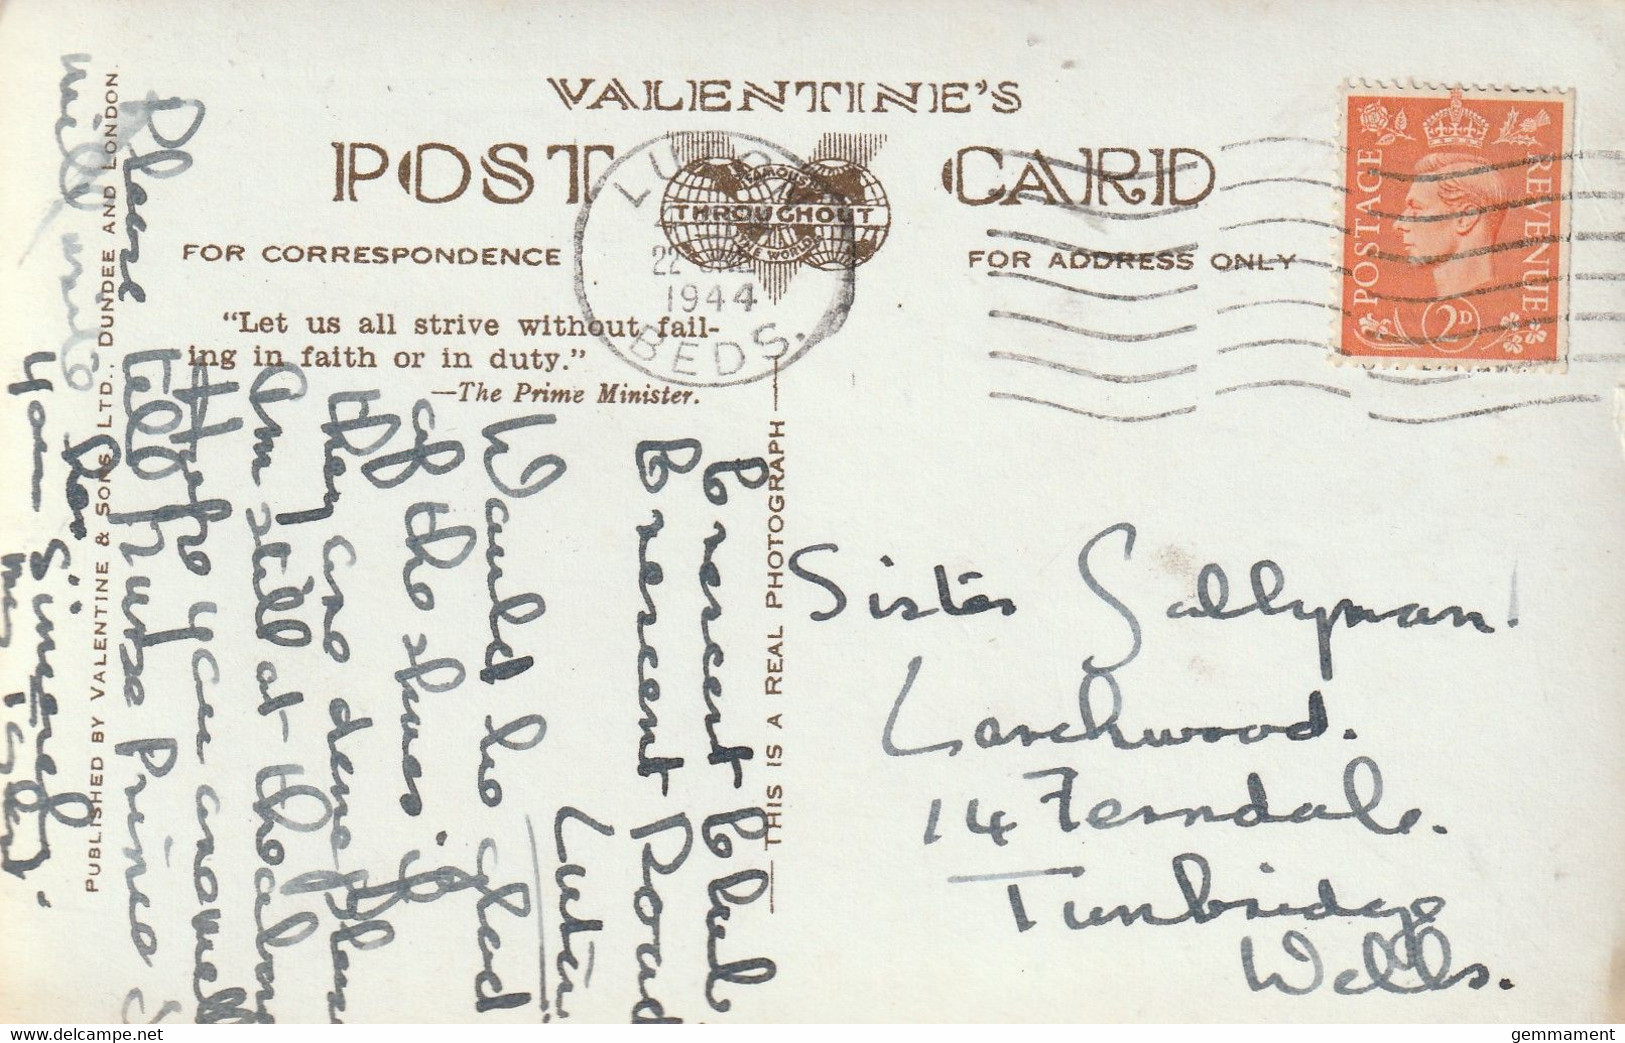 VALENTINE'S
POST CARD
FAMOUS
THROUGHOUT
THE WORLD
FOR CORRESPONDENCE
FOR ADDRESS ONLY
"Let us all strive without fail-
ing in faith or in duty."
—The Prime Minister.
BEDS.
22
1944
POSTAGE REVENUE
2D
THIS IS A REAL PHOTOGRAPH
PUBLISHED BY VALENTINE & SONS LTD., DUNDEE AND LONDON.
Cresent Club
Cresent Road
Luton
Would be glad
of the shoes if
they are done Please
Am still at the above
Hope you are well
Please tell Nurse Prince I
will write
Yours Sincerely
Sister Sallyman
Larchwood.
14 Ferndale.
Tunbridge
Wells.
gemmament